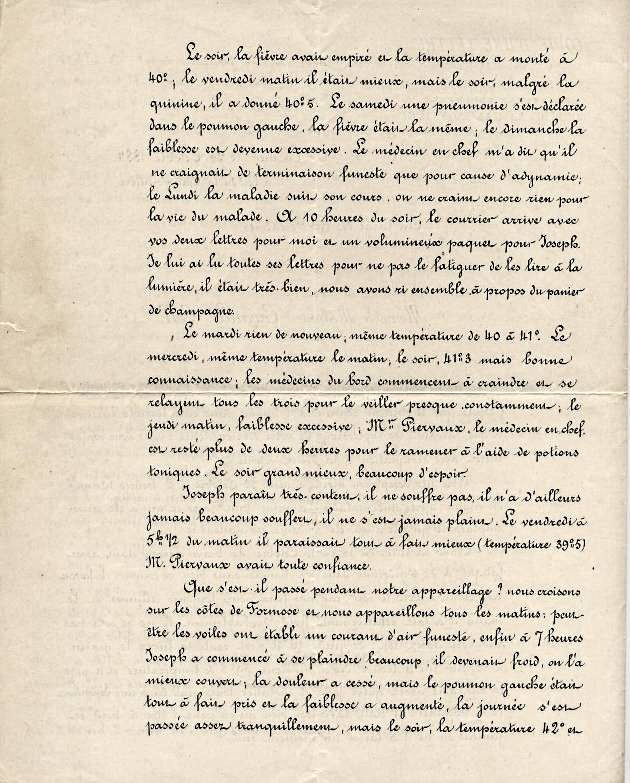 Le soir, la fièvre avait empiré et la température a monté à
40°; le vendredi matin il était mieux, mais le soir, malgré la
quinine, il a donné 40°5. Le samedi une pneumonie s'est déclarée
dans le poumon gauche, la fièvre était la même; le dimanche la
faiblesse est devenue excessive. Le médecin en chef m'a dit qu'il
ne craignait de terminaison funeste que pour cause d'adynamie;
le Lundi la maladie suit son cours. on ne craint encore rien pour
la vie du malade. A 10 heures du soir, le courrier arrive avec
vos deux lettres pour moi et un volumineux paquet pour Joseph.
Je lui ai lu toutes ses lettres pour ne pas le fatiguer de les lire à la
lumière, il était très-bien, nous avons ri ensemble à propos du panier
de champagne.
Le mardi rien de nouveau; même température de 40 à 41°. Le
mercredi, même température le matin, le soir, 41°3 mais bonne
connaissance; les médecins du bord commencent à craindre et se
relayent tous les trois pour le veiller presque constamment; le
jeudi matin, faiblesse excessive; Mr Piervaux, le médecin en chef
est resté plus de deux heures pour le ramener à l'aide de potions
toniques. Le soir grand mieux, beaucoup d'espoir.
Joseph paraît très-content, il ne souffre pas, il n'a d'ailleurs
jamais beaucoup souffert, il ne s'est jamais plaint. Le vendredi à
5h 1/2 du matin il paraissait tout à fait mieux (température 39°5)
M. Piervaux avait toute confiance.
Que s'est-il passé pendant notre appareillage? nous croisons
sur les côtes de Formose et nous appareillons tous les matins; peut-
être les voiles ont établi un courant d'air funeste, enfin à 7 heures
Joseph a commencé à se plaindre beaucoup, il devenait froid, on l'a
mieux couvert; la douleur a cessé, mais le poumon gauche était
tout à fait pris et la faiblesse a augmenté, la journée s'est
passée assez tranquillement, mais le soir, la température 42° et